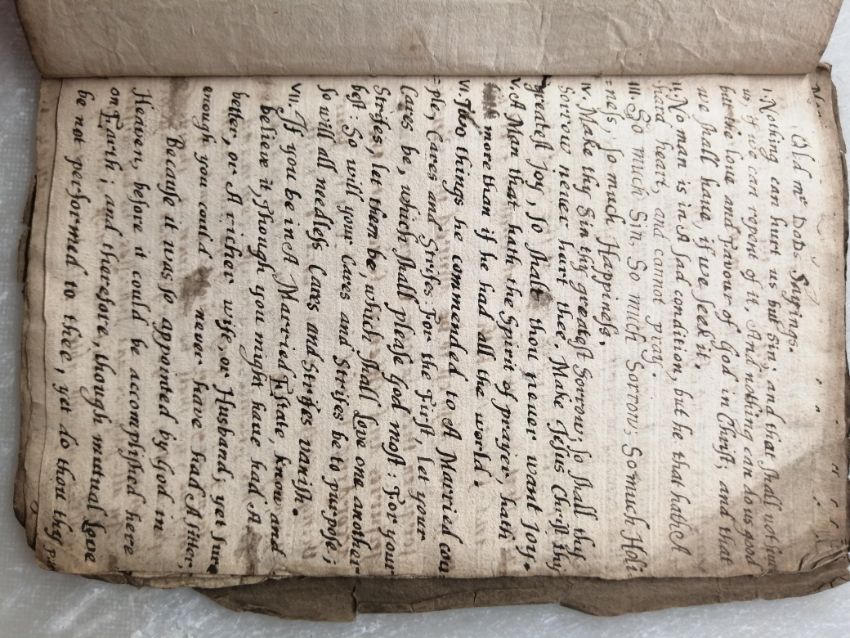 Old mr Dods Sayings.
I. Nothing can hurt us but Sin; and that shall not
us, if we can repent of it. And nothing can do us good
but the love and favour of God in Christ; and that
we shall have, if we seek it.
II. No men is in A sad condition, but he that hath A
hard heart, and cannot pray.
III. So much Sin So much Sorrow; So much Holi-
=ness, so much Happiness.
IV. Make thy Sin thy greatest Sorrow; so shall thy
Sorrow never hurt thee. Make Jesus Christ thy
greatest Joy, so shale thou never want Joy.
V. A Man that hath the Spirit of prayer, hath
more than if he had all the world.
VI. Two things he commended to A Married cou-
=ple, Cares and Strifes. For the First, let your
Cares be, which shall please God most: For your
Strifes, let them be, which shall Love one another
best: So will your Cares and Strifes be to purpose;
so will all needless Cares and Strifes vanish.
VII. If you be in A Married Estate, know and
believe it, though you might have had A
better, or A richer wife, or Husband, yet sure
enough you could never have had A fitter,
Because it was so appointed by God in
Heaven, before it could be accomplished here
on Earth; and therefore, though mutual Love
be not performed to thee, yet do thou thy